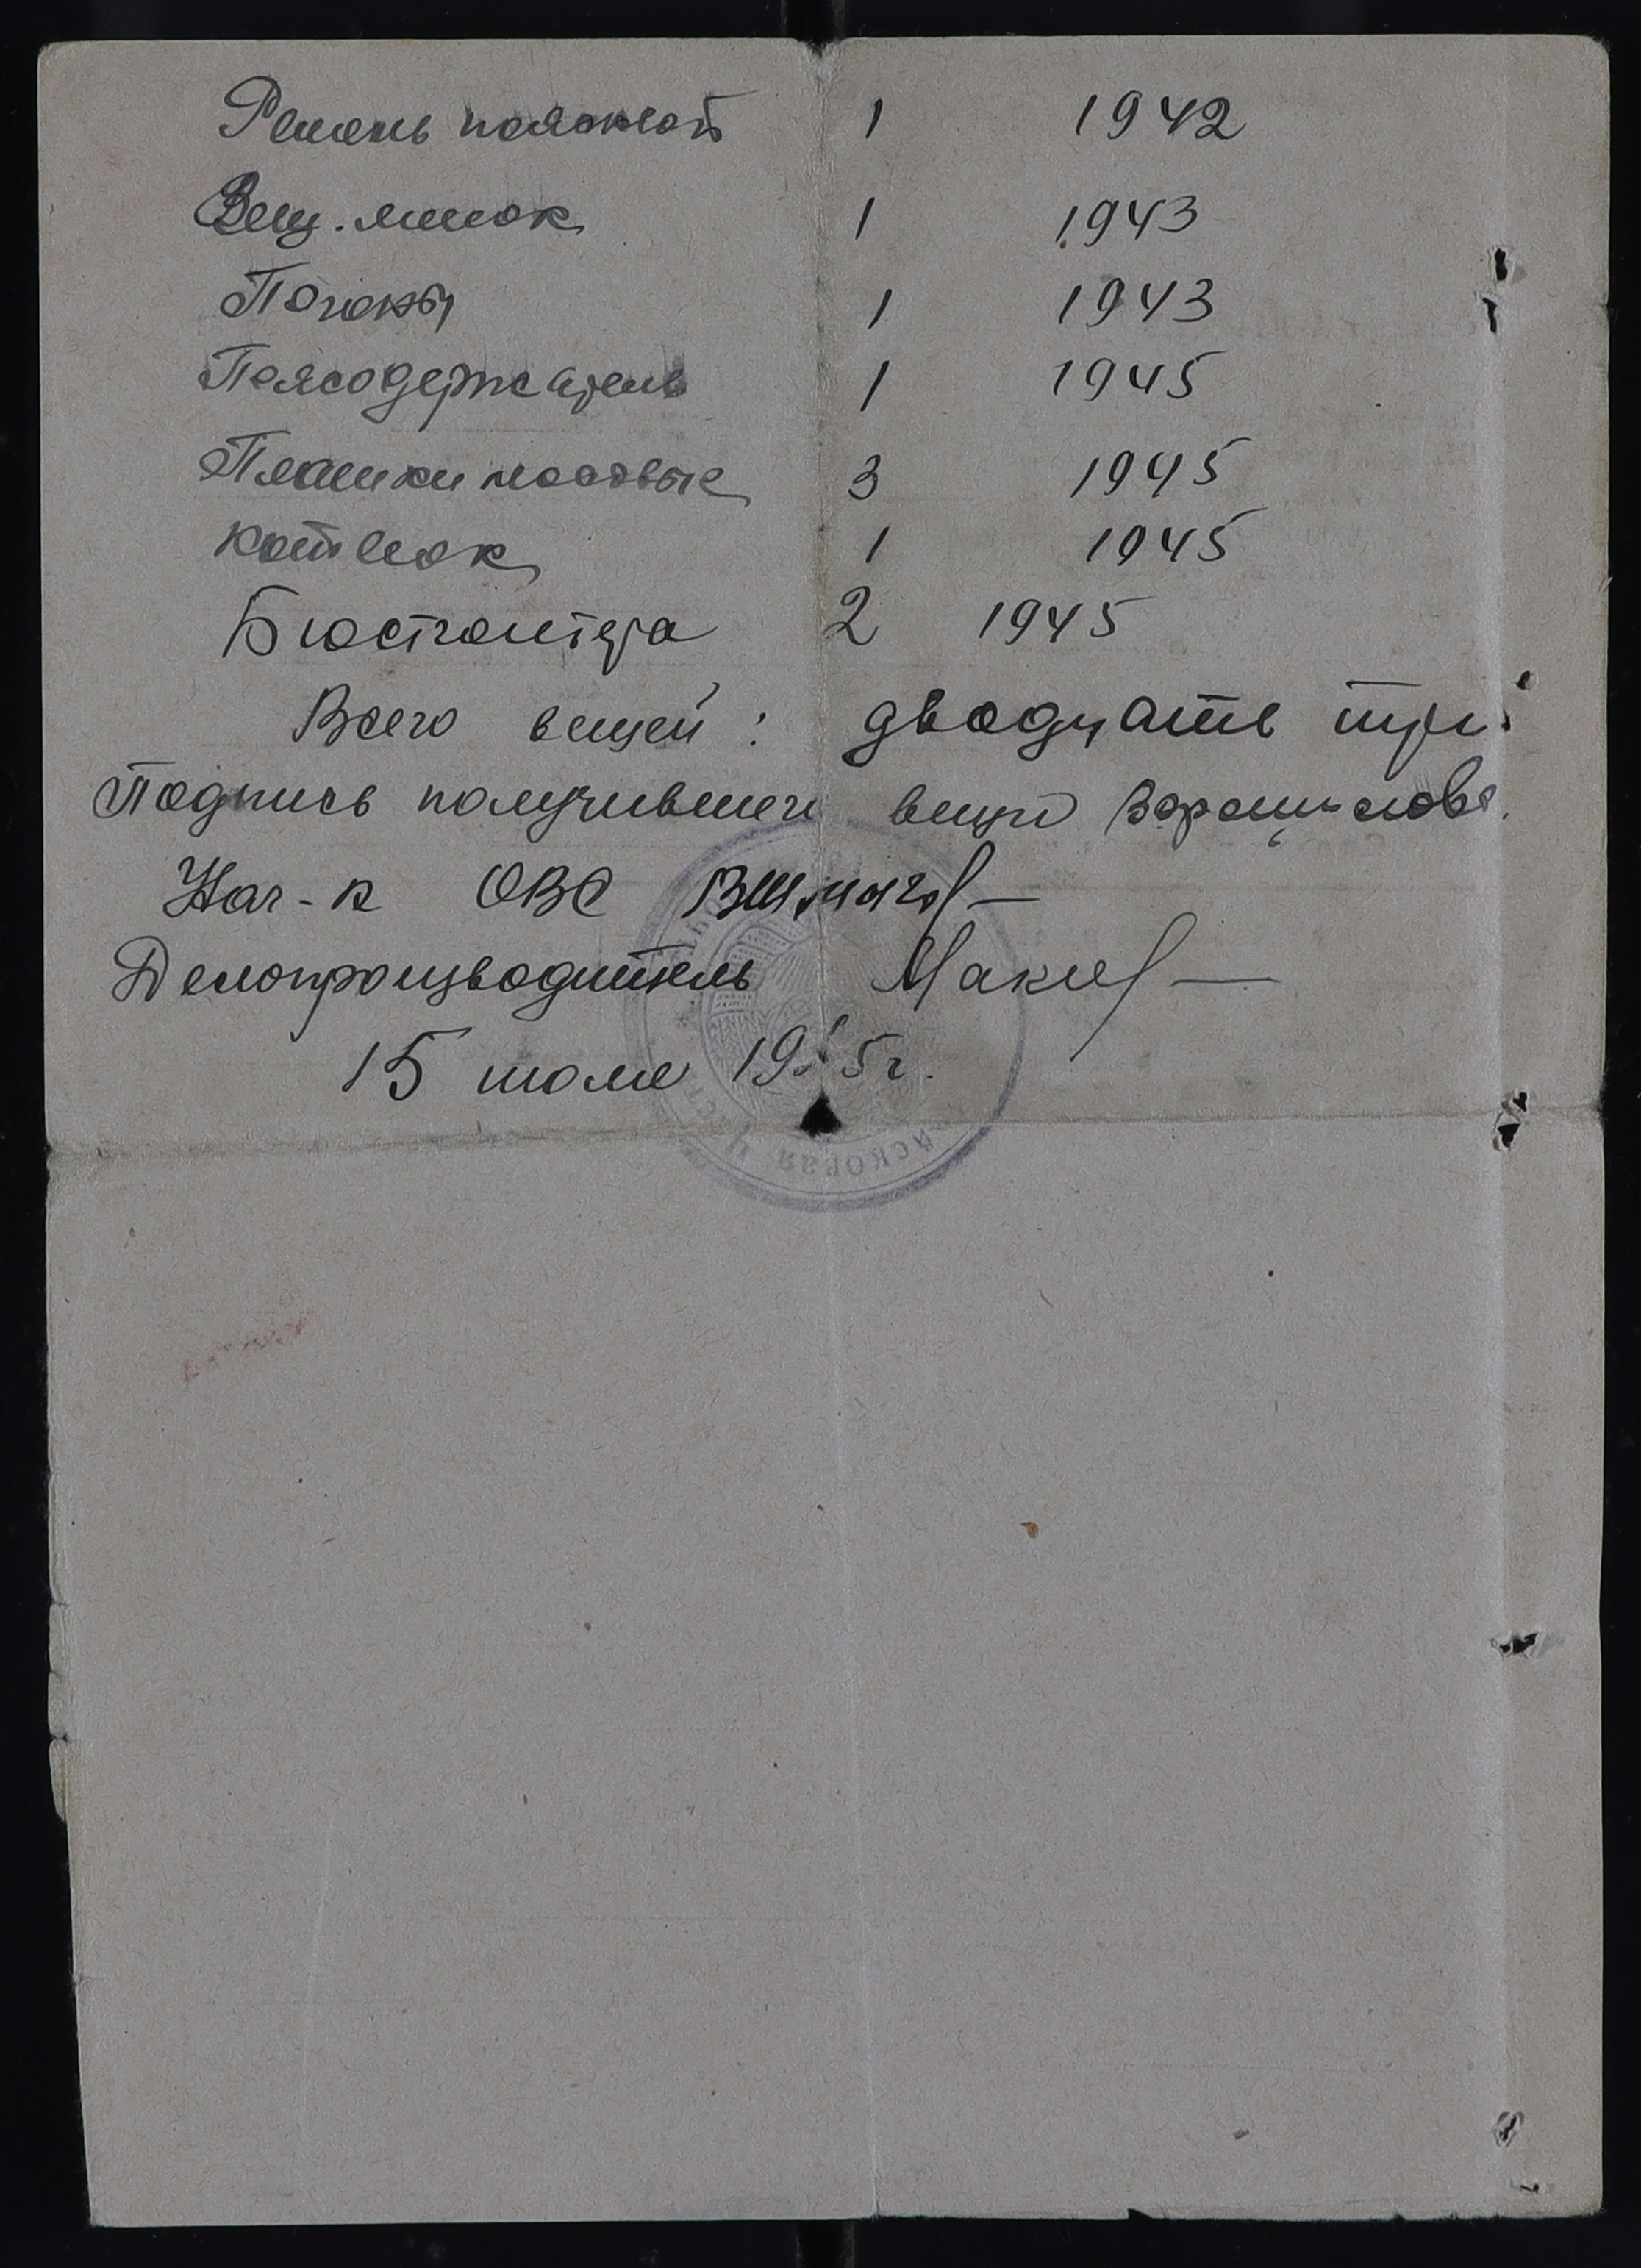 Ремень поясной 1 1942
Вещ. мешок 1 1943
Погоны 1 1943
Поясодержатель 1 1945
Платки носовые 3 1945
Котелок 1 1945
Бюстгалтера 2 1945
Всего вещей: двадцать три
Подпись получившего вещи
Нач-к ОВС
Делопроизводитель
15 июля 1945 г.